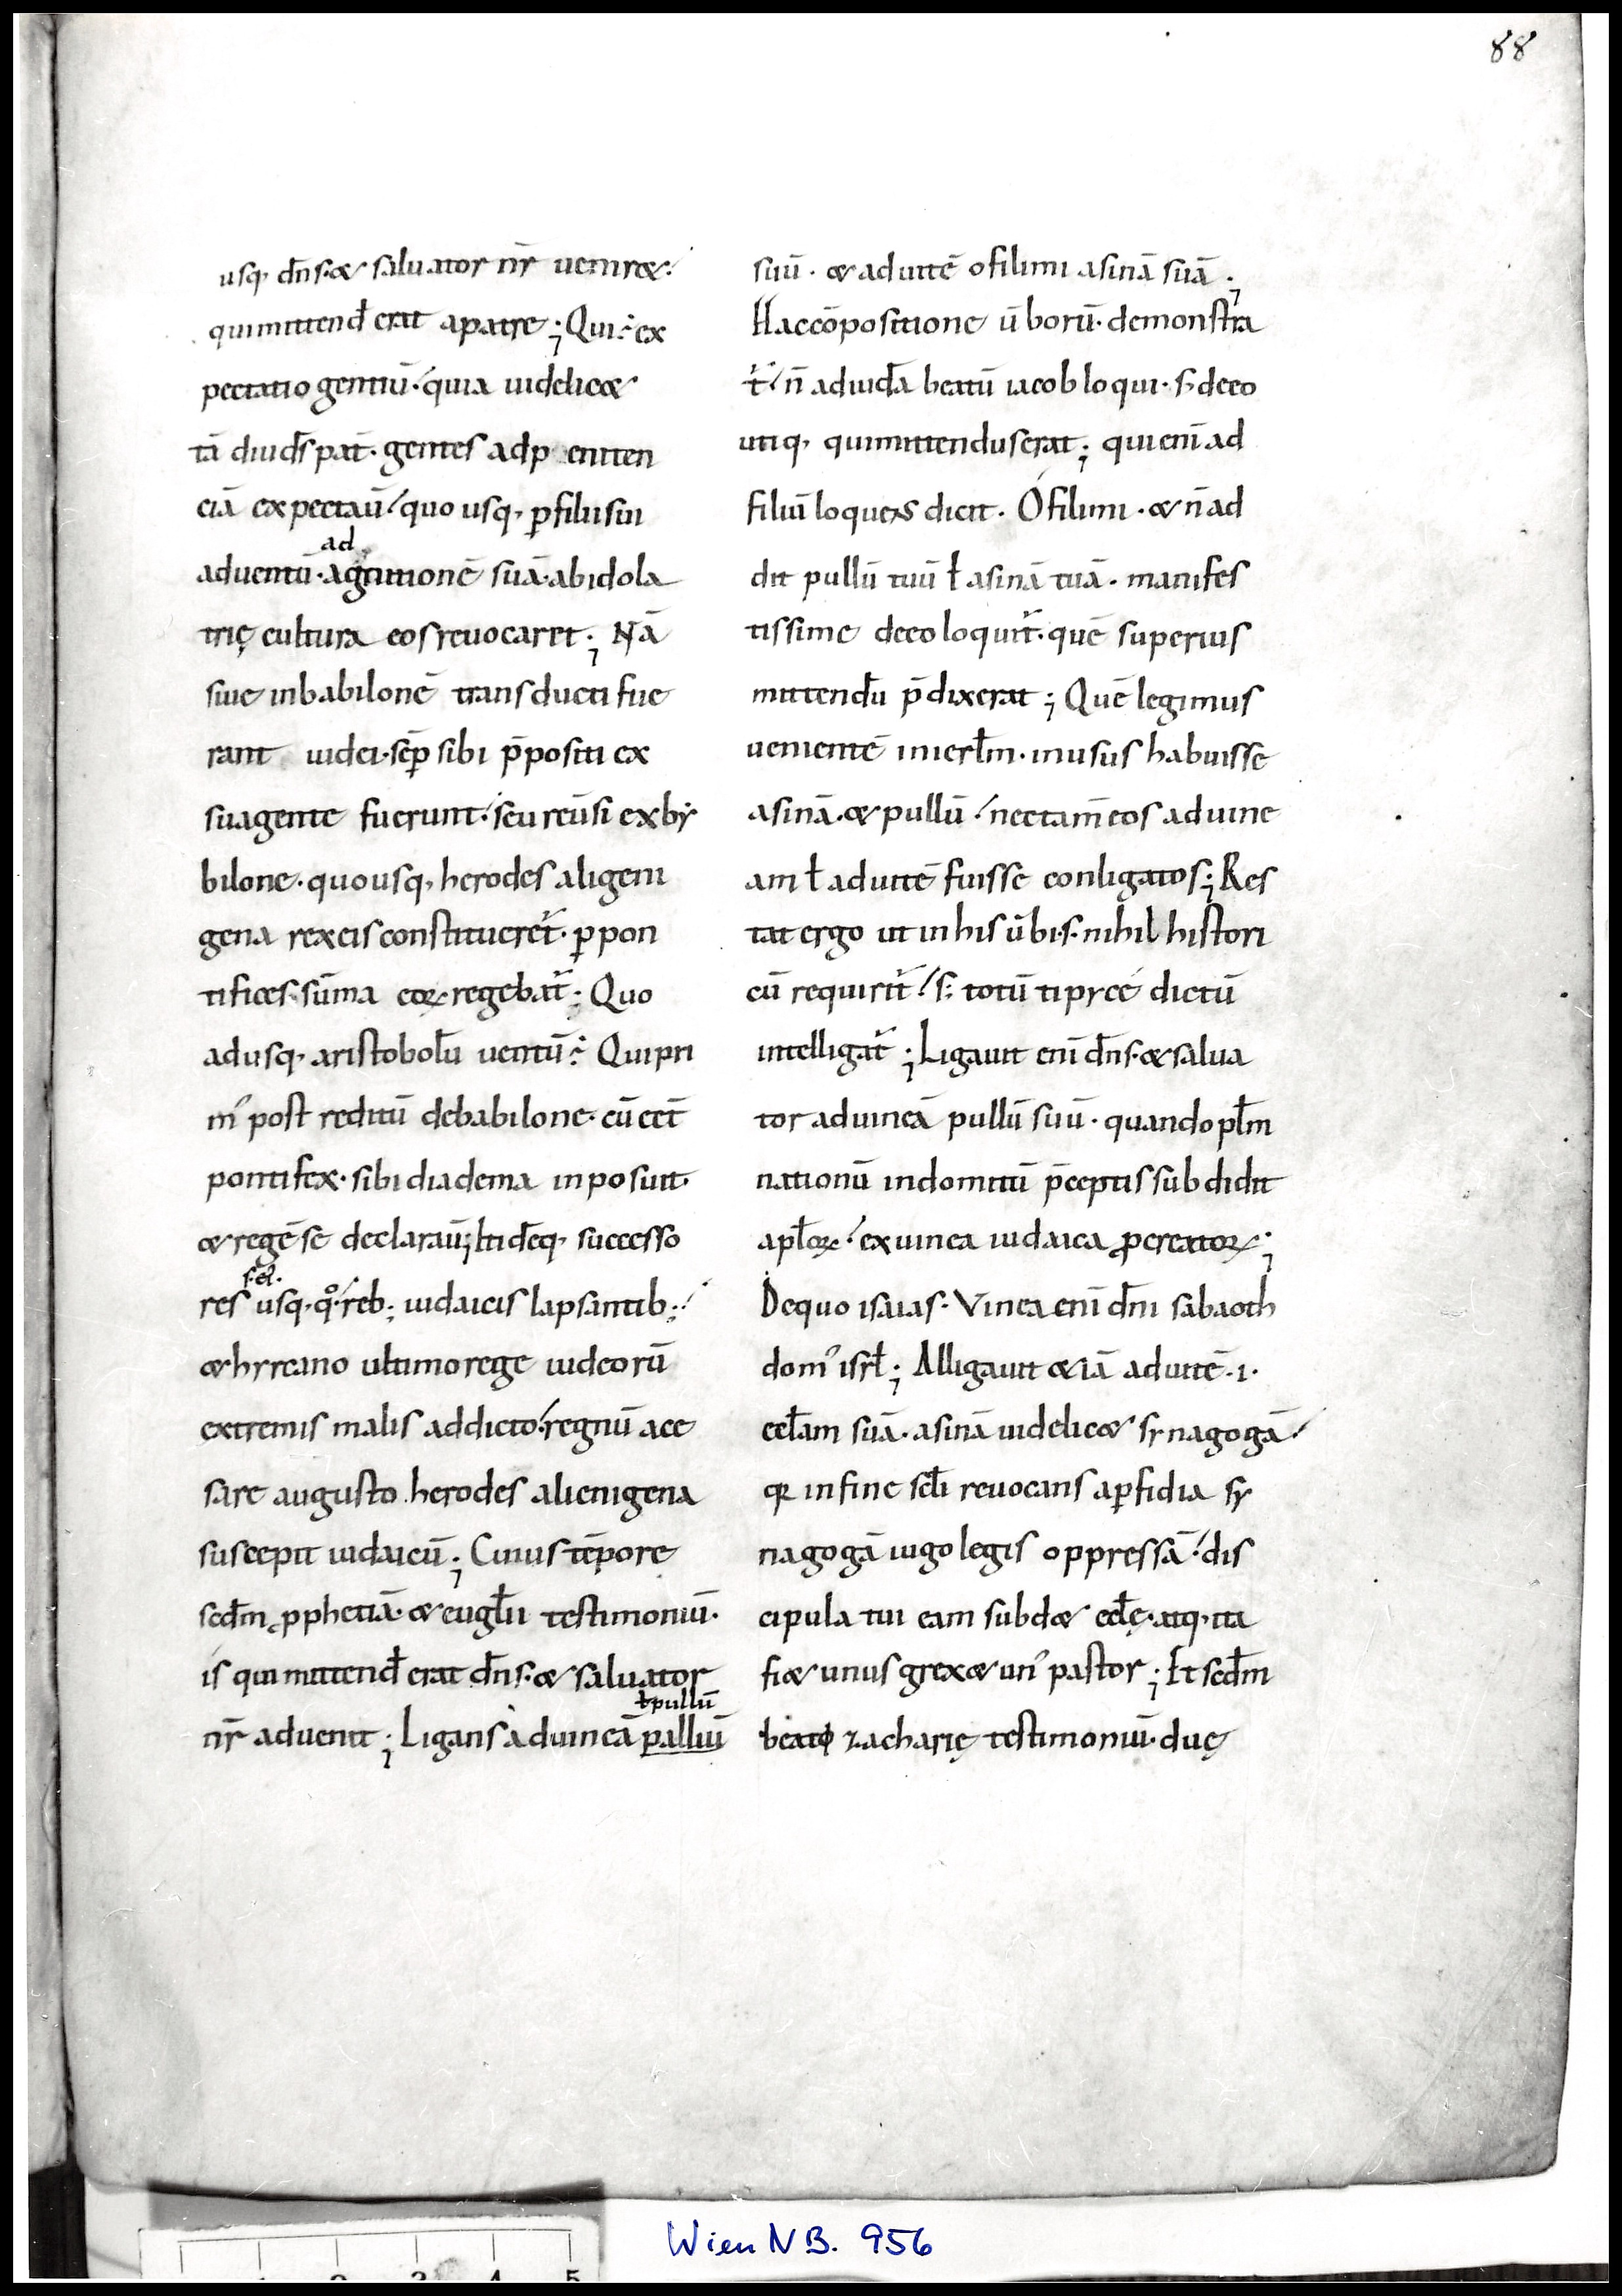 88
usq· dn̄s· & saluator nr̄ uenir&·
qui mittend̄ erat a patre; Qui ÷ ex
pectatio gentiū· quia uidelic&
tā diu ds̄ pat̄· gentes ad p eniten
ciā expectau̅ quo usq· ꝑ filii sui
ad
aduentū· agnitionē suā· ab idola
trię cultura eos reuocar&; Nā
siue in babilonē transducti fue
rant iudei· sēꝑ sibi p̄positi ex
sua gente fuerunt· seu reūsi ex by
bilone· quousq· herodes aligeni
gena rex eis constitueret̄· ꝑ pon
tifices· sūma eoꝝ regebat̄; Quo
adusq· aristobolū uentū ÷ Qui pri
m' post reditū de babilone· cū cēt
pontifex· sibi diadema inposuit·
& regē se declarau̅; Itidēq· successo
s· el·
res usq· q̊· reb; iudaicis lapsantib;
& hyrcano ultimo rege iudeorū
extremis malis addicto· regnū a ce
sare augusto herodes alienigena
suscepit iudaicū; Cuius tēpore
scdm̄ ꝓphetiā· & eugl̄ii testimoniū·
is qui mittend̄ erat dn̄s· & saluator
ł pullū
nr̄ aduenit; Ligans ad uineā palliū
suū· & ad uitē o fili mi asinā suā;
Hac cōpositione ūborū· demonstra
t̄ n̄ ad iudā beatū iacob loqui· s· de eo
utiq· qui mittendus erat; qui enī ad
filiū loquens dicit· O fili mi· & n̄ ad
dit pullū tuū ł asinā tuā· manifes
tissime de eo loquit̄· quē superius
mittendū p̄dixerat; Quē legimus
uenientē in ierl̄m· in usus habuisse
asinā· & pullū nec tam̄ eos ad uine
am ł ad uitē fuisse conligatos; Res
tat ergo ut in his ūbis· nihil histori
cū requirit̄ s; totū tipycé dictū
intelligat̄; Ligauit enī dn̄s· & salua
tor ad uineā pullū suū· quando pl̄m
nationū indomitū p̄ceptis subdidit
apl̄oꝝ· ex uinea iudaica ꝓcreatoꝝ;
De quo isaias· Vinea enī dn̄i sabaoth
dom' isrl̄; Alligauit &iā ad uitē· i·
eccl̄am suā· asinā uidelic& synagogā
qꝛ in fine sc̄li reuocans a ꝑfidia sy
nagogā iugo legis oppressā· dis
cipulatui eam subd& eccl̄ę· atq· ita
fi& unus grex & un' pastor; Et scdm̄
beati zacharię testimoniū· duę
Wien NB. 956